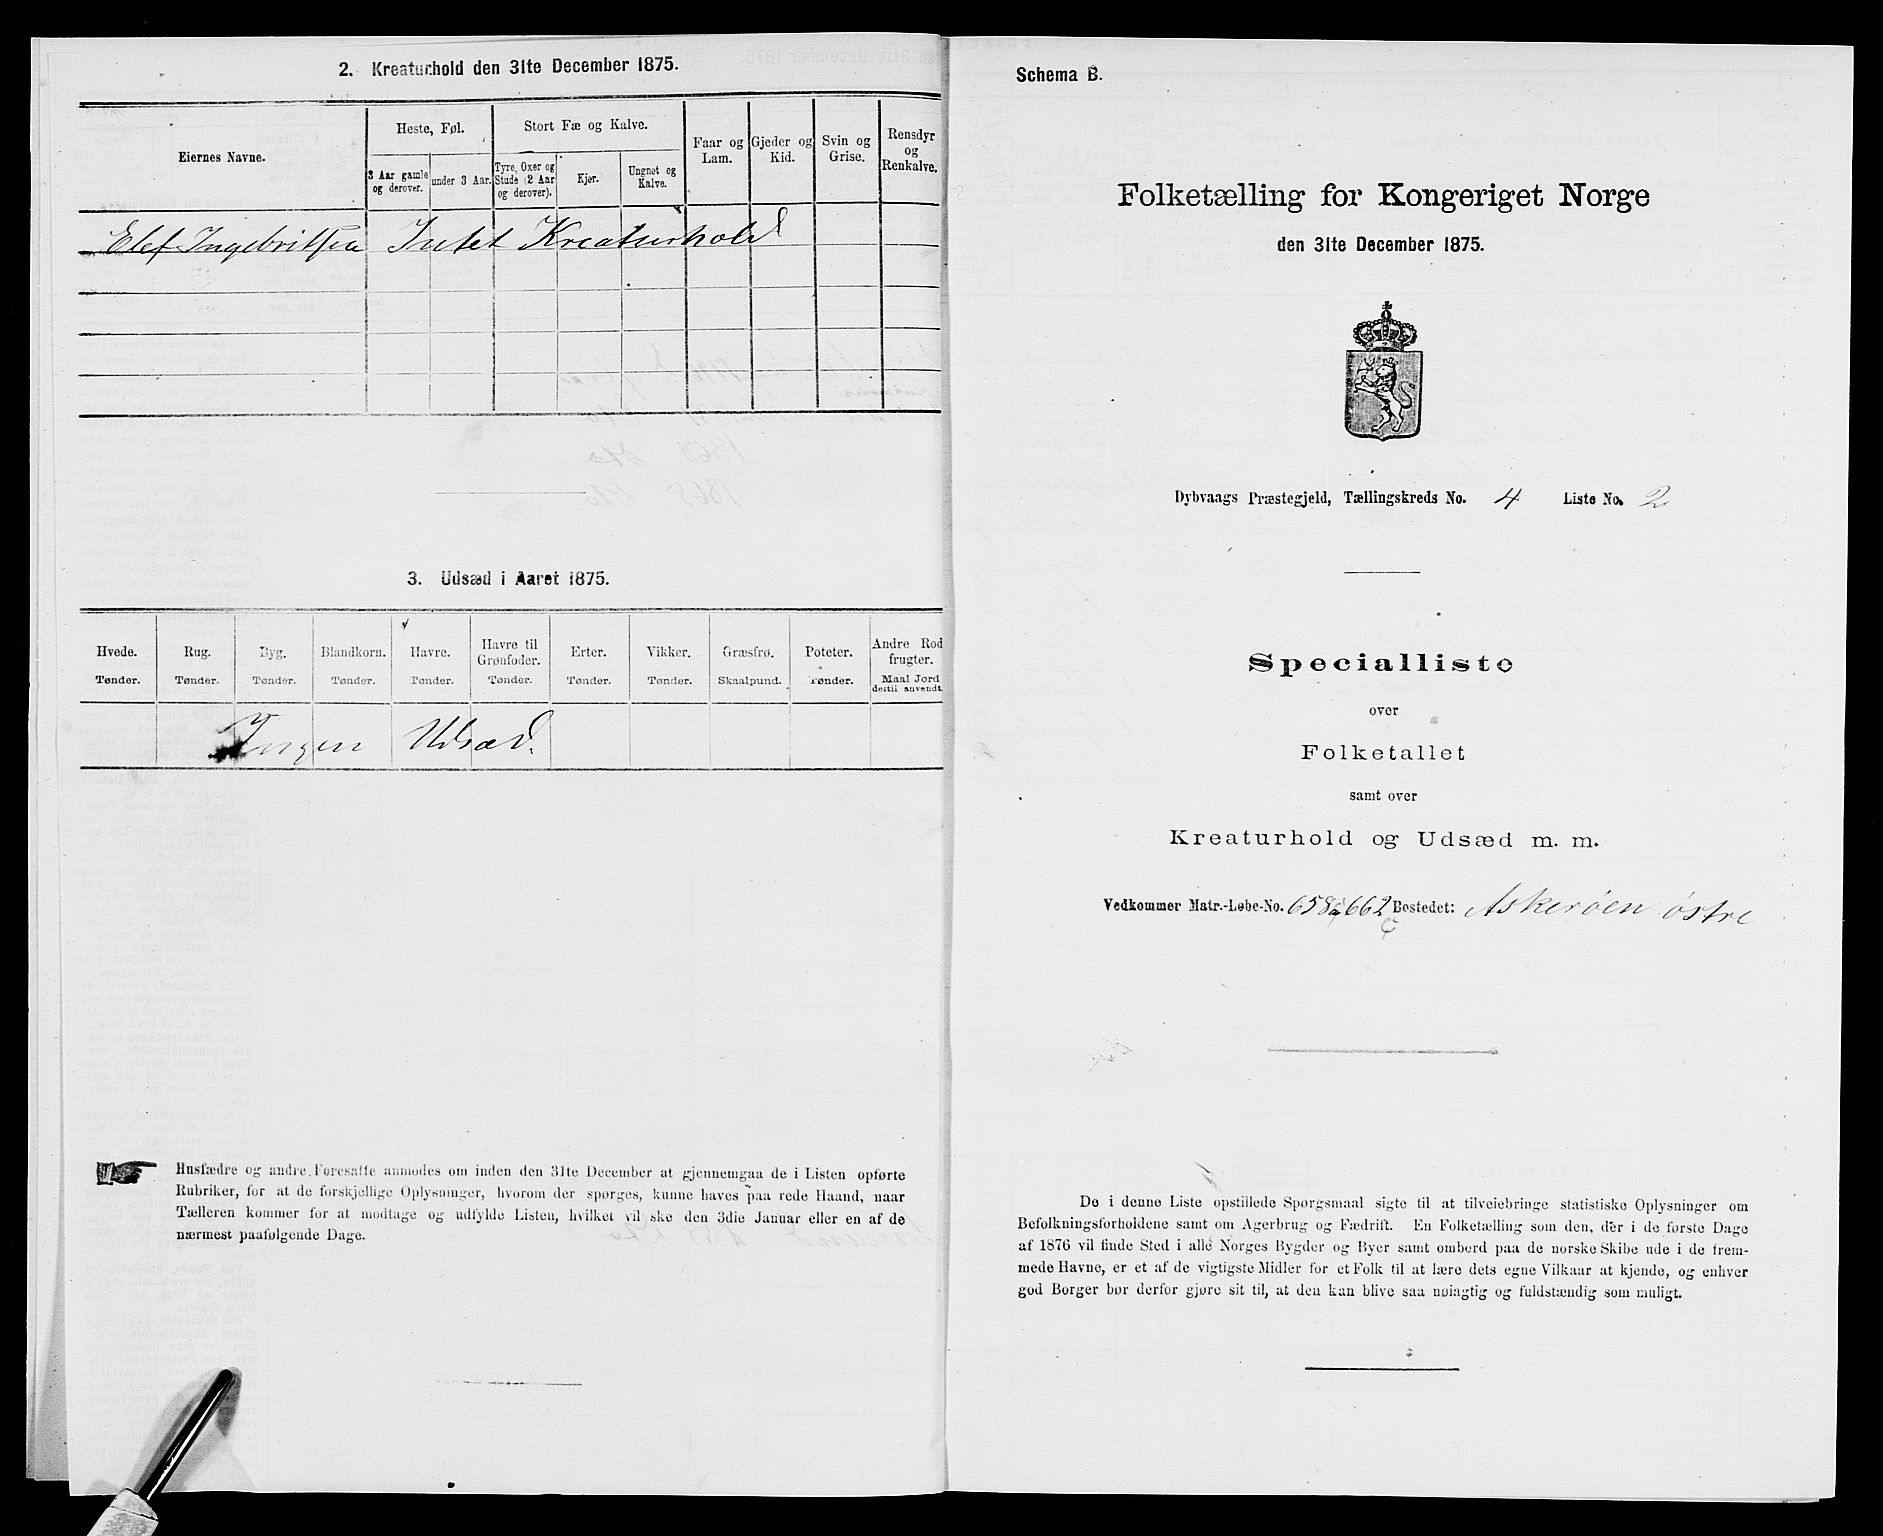 2. Kreaturhold den 31te December 1875.
Eiernes Navne.
Heste, Føl.
Stort Fæ og Kalve.
Faar og Lam.
Gjeder og Kid.
Svin og Grise.
Rensdyr og Renkalve.
3 Aar gamle og derover.
under 3 Aar.
Tyre, Oxer og Stude (2 Aar og derover).
Kjør.
Ungnøt og Kalve.
Elef Ingebritsen Intet Kreaturhold
3. Udsæd i Aaret 1875.
Hvede. Tønder.
Rug. Tønder.
Byg. Tønder.
Blandkorn. Tønder.
Havre. Tønder.
Havre til Grønfoder. Tønder.
Erter. Tønder.
Vikker. Tønder.
Græsfrø. Skaalpund.
Poteter. Tønder.
Andre Rodfrugter. Maal Jord dertil anvendt.
Ingen Udsæd.
Husfædre og andre Foresatte anmodes om inden den 31te December at gjennemgaa de i Listen opførte
Rubriker, for at de forskjellige Oplysninger, hvorom der spørges, kunne haves paa rede Haand, naar
Tælleren kommer for at modtage og udfylde Listen, hvilket vil ske den 3die Januar eller en af de
nærmest paafølgende Dage.
Schema B.
Folketælling for Kongeriget Norge
den 31te December 1875.
Dybvaags Præstegjeld, Tællingskreds No. 4 Liste No. 2
Specialliste
over
Folketallet
samt over
Kreaturhold og Udsæd m. m.
Vedkommer Matr.-Løbe-No. 658a 662c Bostedet: Askerøen østre
De i denne Liste opstillede Spørgsmaal sigte til at tilveiebringe statistiske Oplysninger om
Befolkningsforholdene samt om Agerbrug og Fædrift. En Folketælling som den, der i de første Dage
af 1876 vil finde Sted i alle Norges Bygder og Byer samt ombord paa de norske Skibe ude i de frem-
mede Havne, er et af de vigtigste Midler for et Folk til at lære dets egne Vilkaar at kjende, og enhver
god Borger bør derfor gjøre sit til, at den kan blive saa nøiagtig og fuldstændig som muligt.